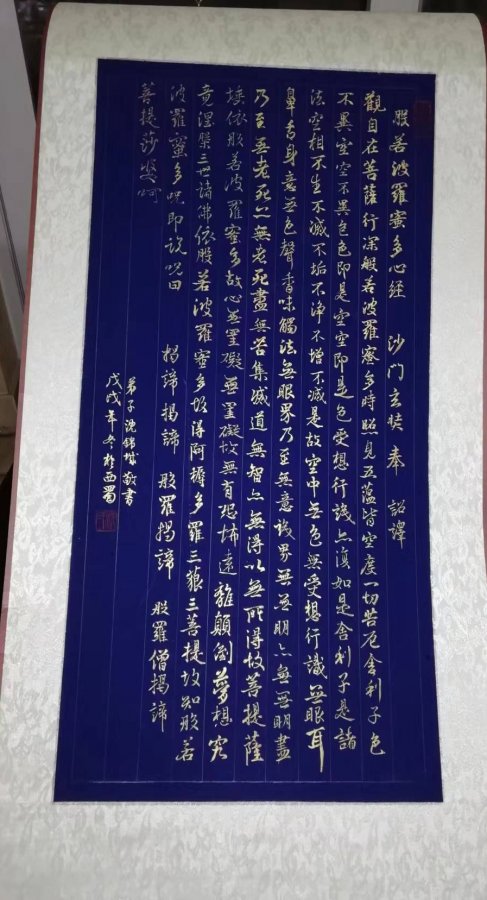 般若波羅蜜多心經 沙门玄奘奉 詔譯
觀自在菩薩行深般若波羅蜜多時照見五蘊皆空度一切苦厄舍利子色
不異空空不異色色即是空空即是色受想行識亦復如是舍利子是諸
法空相不生不滅不垢不淨不增不減是故空中無色無受想行識無眼耳
鼻舌身意無色聲香味觸法無眼界乃至無意識界無無明亦無無明盡
乃至無老死亦無老死盡無苦集滅道無智亦無得以無所得故菩提薩
埵依般若波羅蜜多故心無罣礙無罣礙故無有恐怖遠離顛倒夢想究
竟涅槃三世諸佛依般若波羅蜜多故得阿耨多羅三藐三菩提故知般若
波羅蜜多呪即説呪曰 揭諦揭諦 般羅揭諦 般羅僧揭諦
菩提莎婆訶
弟子沈錦城敬書
戊戌年冬於西蜀